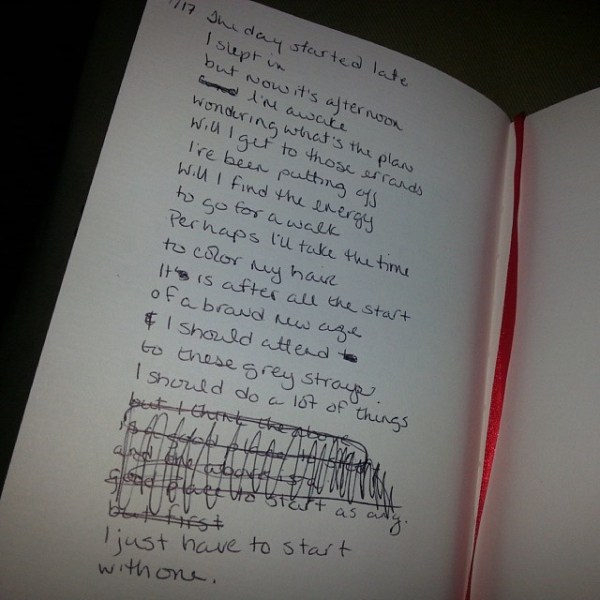 /17 The day started late
I slept in
but now it's afternoon
and I'm awake
wondering what's the plan
Will I get to those errands
I've been putting off
Will I find the energy
to go for a walk
Perhaps I'll take the time
to color my hair
It's is after all the start
of a brand new age
& I should attend to
to these grey strays.
I should do a lot of things
but I think the above
is a good place
and the above is a
good place to start as any.
but first
I just have to start
with one.